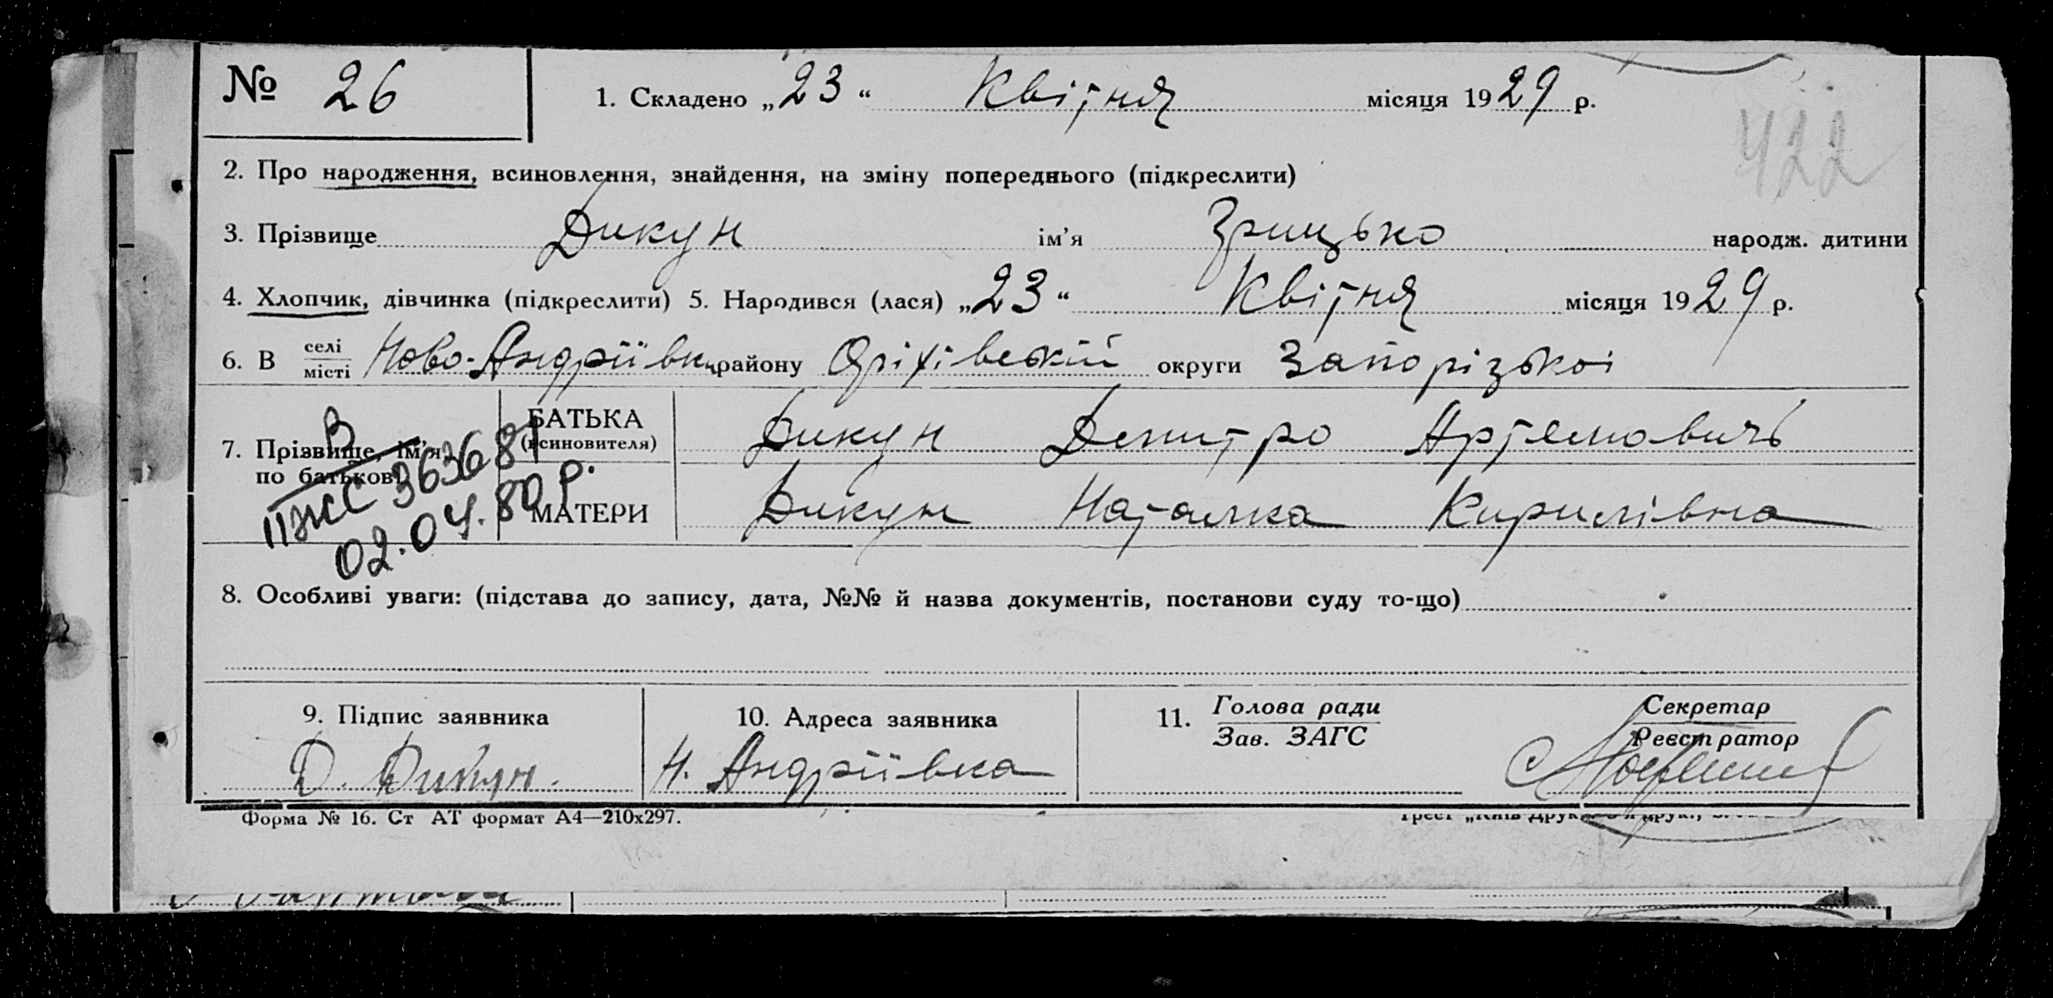 № 26
1. Складено „23“ Квітня місяця 1929 р.
422
2. Про народження, всиновлення, знайдення, на зміну попереднього (підкреслити)
3. Прізвище Дикун ім’я Грицько народж. дитини
4. Хлопчик, дівчинка (підкреслити) 5. Народився (лася) „23“ Квітня місяця 1929 р.
6. В селі місті Ново-Андріївці району Оріхівській округи Запорізької
7. Прізвище, ім’я по батькові
БАТЬКА (всиновителя) Дикун Дмитро Артемовичь
МАТЕРИ Дикун Наталка Кирилівна
ІІЖС 363681
02.04.80 р.
8. Особливі уваги: (підстава до запису, дата, №№ й назва документів, постанови суду то-що)
9. Підпис заявника
Д. Дикун.
10. Адреса заявника
Н. Андріівка
11. Голова ради
Зав. ЗАГС
Секретар
Реєстратор
Форма № 16. Ст АТ формат А4—210х297.